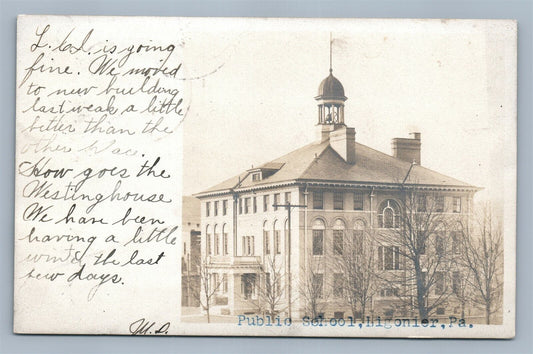 L. C. I. is going
fine. We moved
to new building
last weak, a little
better than the
other place.
How goes the
Westinghouse
We have been
having a little
wind the last
few days.
M. D.
Public School, Ligonier, Pa.